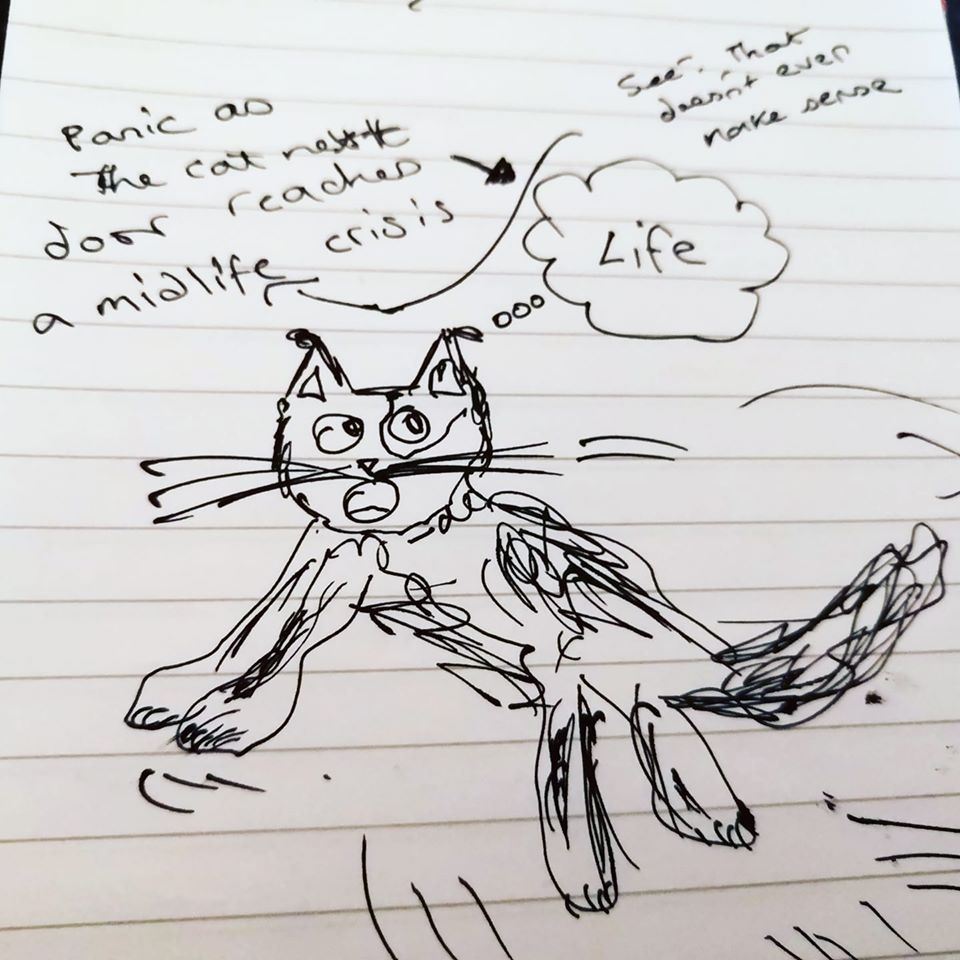 Panic as
The cat next
door reaches
a midlife crisis
See. That
doesn't even
make sense
Life